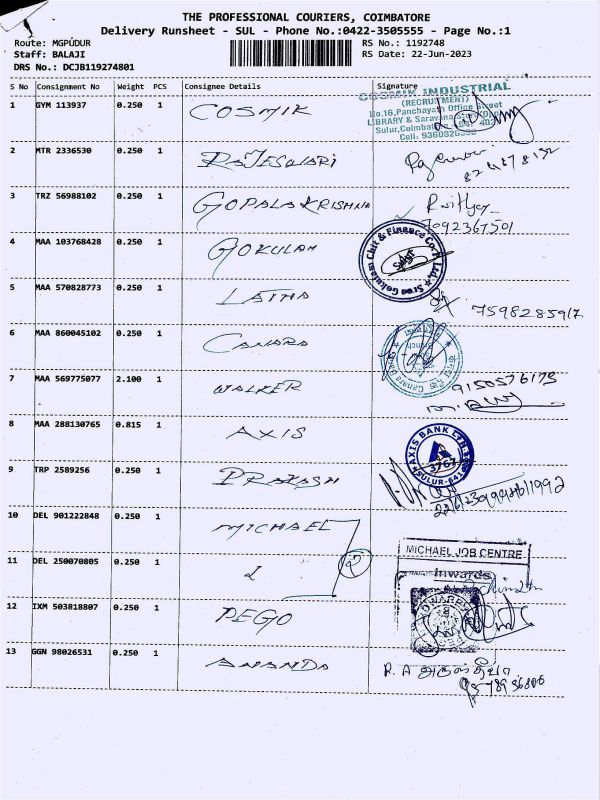 THE PROFESSIONAL COURIERS, COIMBATORE
Delivery Runsheet - SUL - Phone No.:0422-3505555 - Page No.:1
Route: MGPÚDUR
RS No.: 1192748
Staff: BALAJI
RS Date: 22-Jun-2023
DRS No.: DCJB119274801
S No Consignment No Weight PCS Consignee Details Signature
1 GYM 113937 0.250 1 COSMIK
COSMIK INDUSTRIAL
(RECRUITMENT)
No.16, Panchayath Office Street
LIBRARY &
Sulur, Coimbatore
2 MTR 2336530 0.250 1 RAJESWARI
3 TRZ 56988102 0.250 1 GOPALA KRISHNA
7092367501
4 MAA 103768428 0.250 1 GOKULAM
Sree Gokulam Chit & Finance Co.
5 MAA 570828773 0.250 1 LATHA
7598285917
6 MAA 860045102 0.250 1 CANARA
7 MAA 569775077 2.100 1 WALKER
9150576173
8 MAA 288130765 0.815 1 AXIS
AXIS BANK LTD.
3767
SULUR-641
9 TRP 2589256 0.250 1 PRAKASH
10 DEL 901222848 0.250 1 MICHAEL
2
11 DEL 250070805 0.250 1
MICHAEL JOB CENTRE
Inwards
12 IXM 503818807 0.250 1 PEGO
13 GGN 98026531 0.250 1 ANANDA
R. A